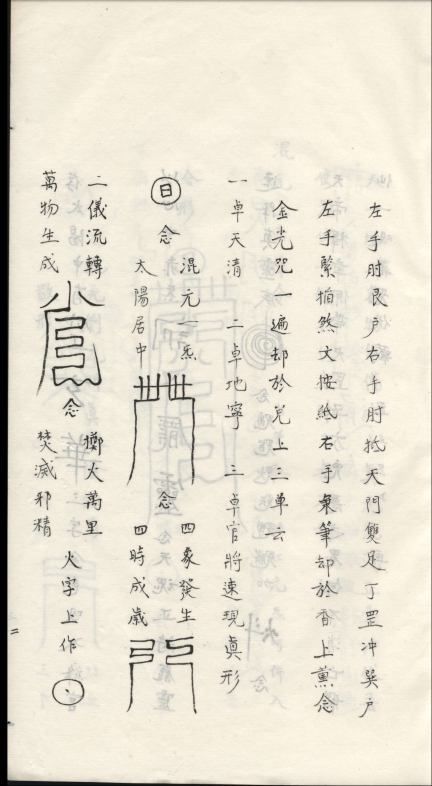 左手肘艮户右手肘抵天門雙足丁罡冲巽户
左手緊掐煞文按紙右手秉筆却於香上薰念
金光咒一遍却於兑上三卓云
一卓天清 二卓地寧 三卓官將速現真形
日 念 混元一炁 太陽居中 念 四象發生 四時成歲
二儀流轉 萬物生成 念 擲火萬里 焚滅邪精 火字上作
二